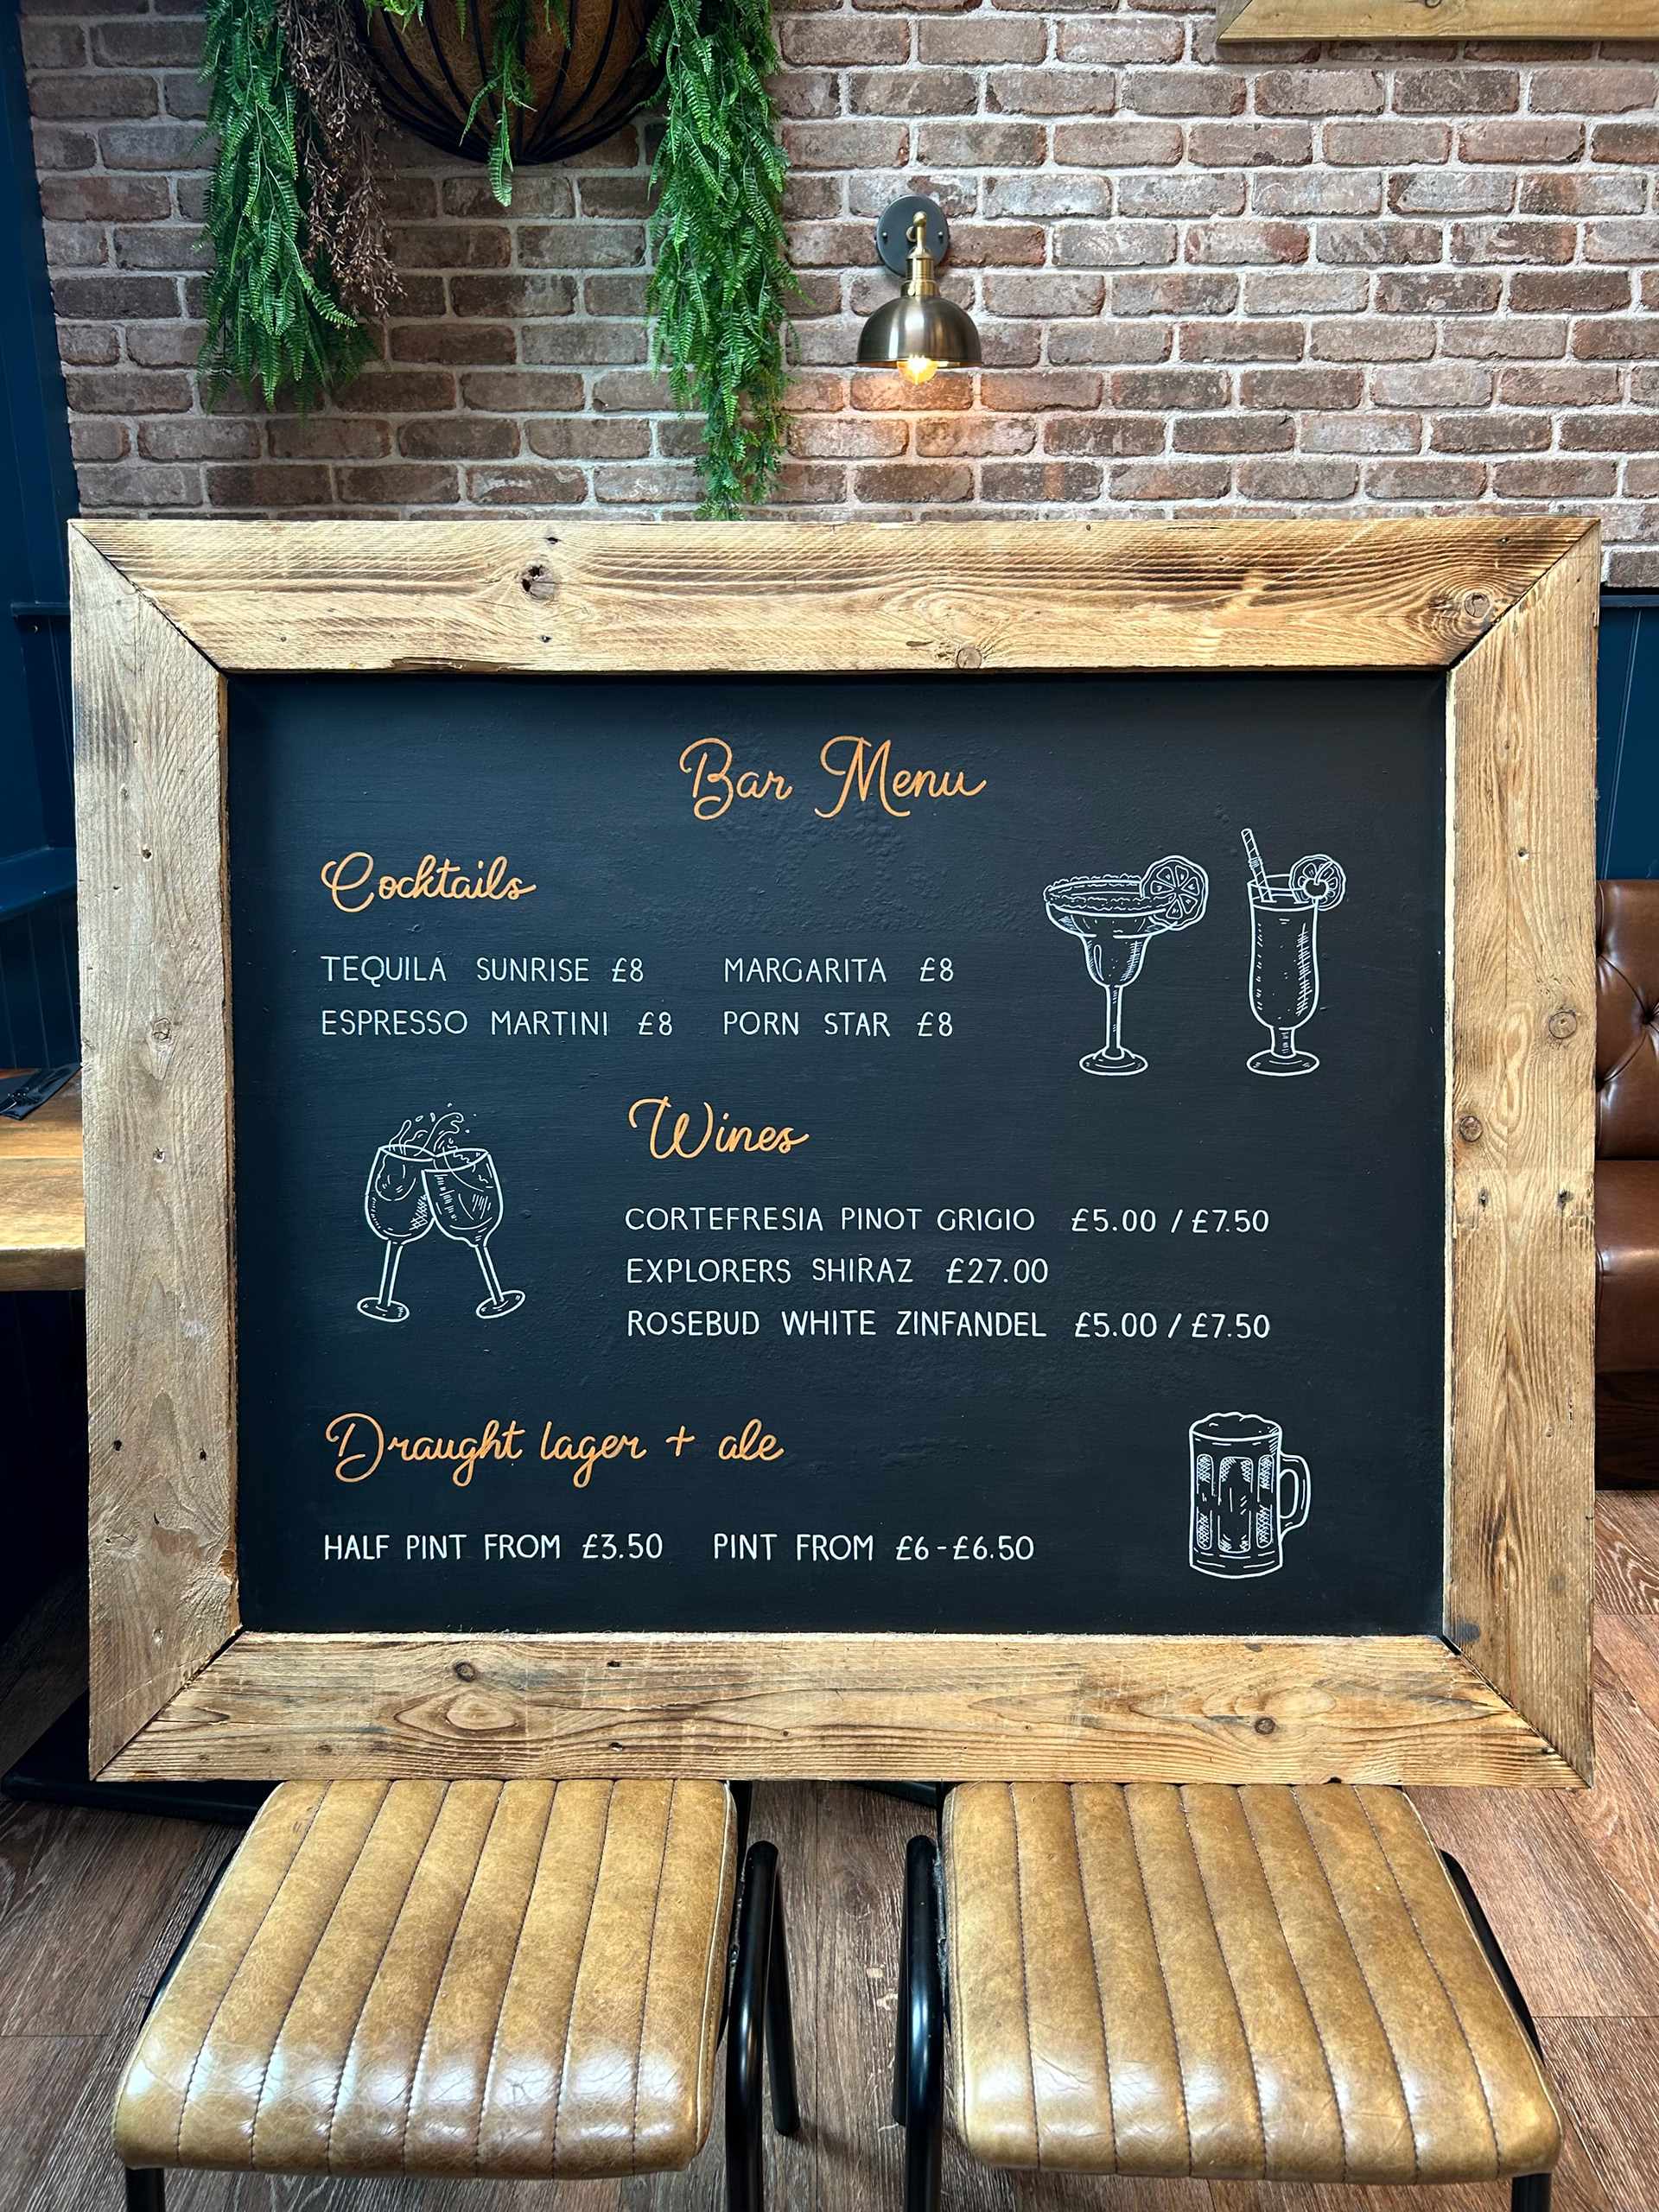 Bar Menu
Cocktails
TEQUILA SUNRISE £8 MARGARITA £8
ESPRESSO MARTINI £8 PORN STAR £8
Wines
CORTEFRESIA PINOT GRIGIO £5.00 / £7.50
EXPLORERS SHIRAZ £27.00
ROSEBUD WHITE ZINFANDEL £5.00 / £7.50
Draught lager + ale
HALF PINT FROM £3.50 PINT FROM £6-£6.50